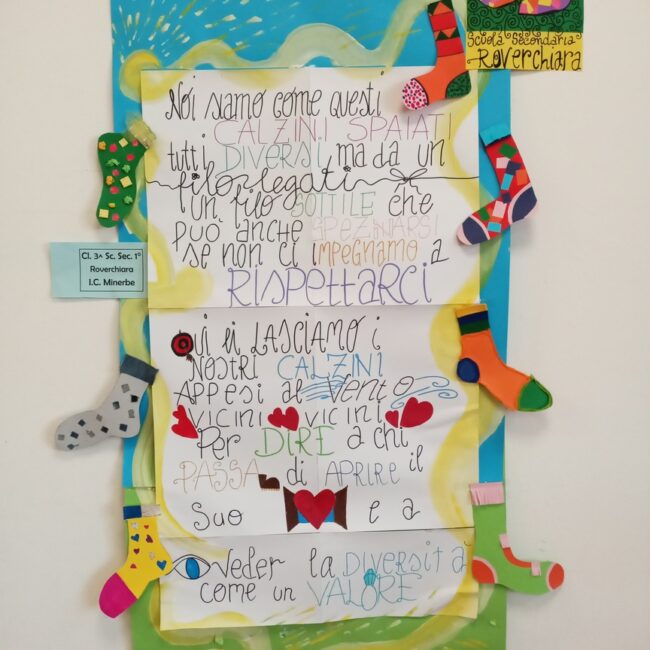 Scuola Secondaria
Roverchiara
Noi siamo come questi
CALZINI SPAIATI
tutti DIVERSI ma da un
filo legati
un filo SOTTILE che
può anche SPEZZARSI
se non ci IMPEGNAMO a
RISPETTARCI
Cl. 3^ Sc. Sec. 1°
Roverchiara
I.C. Minerbe
Qui li LASCIAMO i
NOSTRI CALZINI
APPESI al vento
VICINI VICINI
Per DIRE a chi
PASSA di APRIRE il
suo e a
veder la DIVERSITÀ
come un VALORE